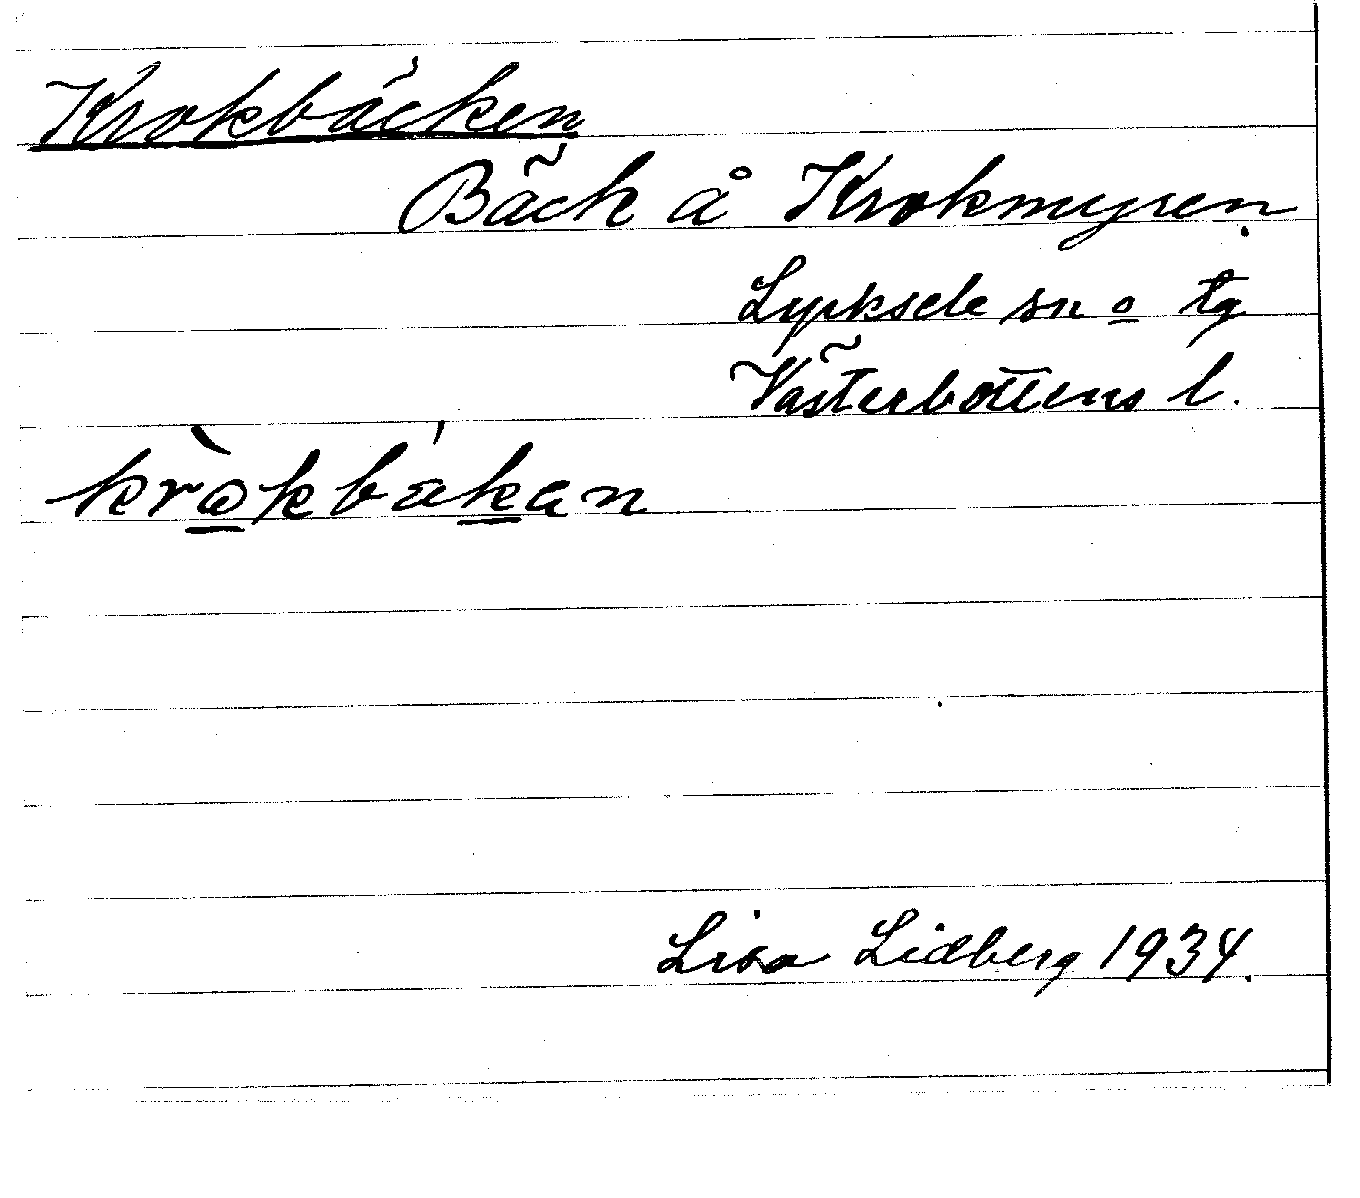 Krokbäcken
Bäck å Krokmyren.
Lycksele sn o tg
Västerbottens l.
kròkbákan
Lisa Lidberg 1934.